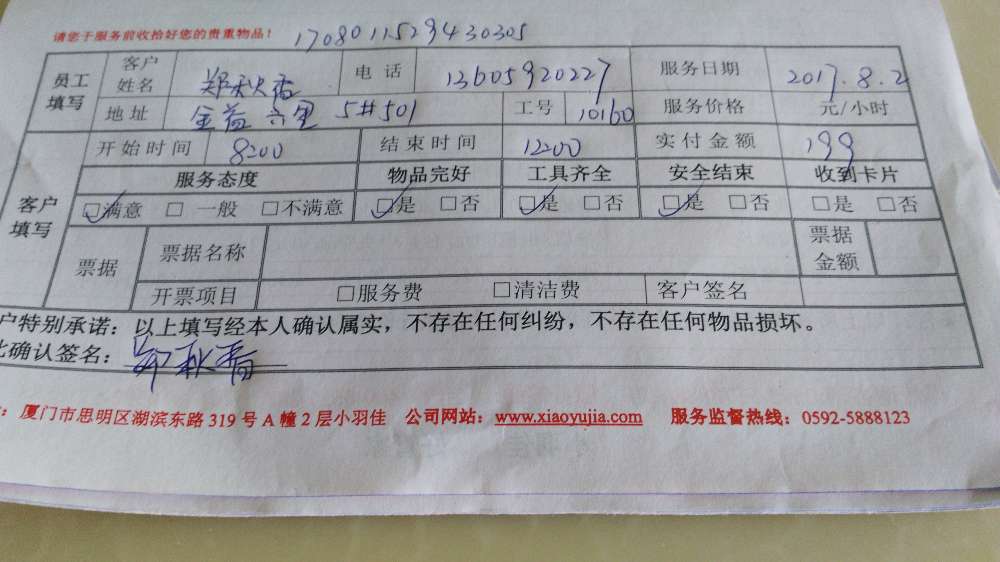 请您于服务前收拾好您的贵重物品！ 170801152943030305
员工填写 客户姓名 郑秋香 电话 13605920227 服务日期 2017.8.2
地址 金益六里 5#501 工号 10160 服务价格 元/小时
客户填写 开始时间 8:00 结束时间 12:00 实付金额 199
服务态度 物品完好 工具齐全 安全结束 收到卡片
☑满意 □ 一般 □不满意 ☑是 □否 ☑是 □否 ☑是 □否 □是 □否
票据 票据名称 票据金额
开票项目 □服务费 □清洁费 客户签名
户特别承诺：以上填写经本人确认属实，不存在任何纠纷，不存在任何物品损坏。
确认签名： 郑秋香
：厦门市思明区湖滨东路 319 号 A 幢 2 层小羽佳 公司网站：www.xiaoyujia.com 服务监督热线：0592-5888123